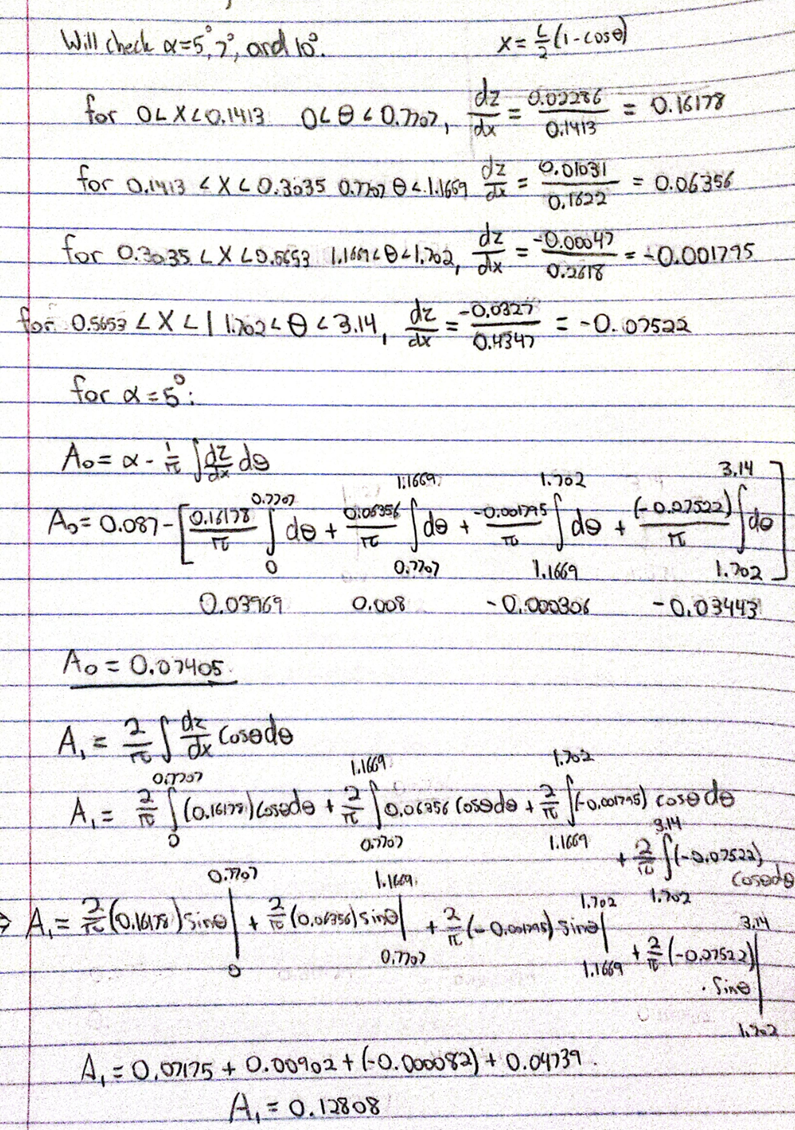 Will check α=5°, 7°, and 10°. x = L/2 (1-cosθ)
for 0<X<0.1413 0<θ<0.7707, dz/dx = 0.02286/0.1413 = 0.16178
for 0.1413<X<0.3035 0.7707<θ<1.1669 dz/dx = 0.01031/0.1622 = 0.06356
for 0.3035<X<0.5653 1.1669<θ<1.702, dz/dx = -0.00047/0.2618 = -0.001795
for 0.5653<X<1 1.702<θ<3.14, dz/dx = -0.0327/0.4347 = -0.07522
for α=5°:
A₀ = α - 1/π ∫ dz/dx dθ
A₀ = 0.087 - [0.16178/π ∫₀^0.7707 dθ + 0.06356/π ∫_0.7707^1.1669 dθ + -0.001795/π ∫_1.1669^1.702 dθ + (-0.07522)/π ∫_1.702^3.14 dθ]
0.03969 0.008 -0.000306 -0.03443
A₀ = 0.07405.
A₁ = 2/π ∫ dz/dx cosθdθ
A₁ = 2/π ∫₀^0.7707 (0.16178)cosθdθ + 2/π ∫_0.7707^1.1669 0.06356 cosθdθ + 2/π ∫_1.1669^1.702 (-0.001795) cosθdθ
+ 2/π ∫_1.702^3.14 (-0.07522) cosθdθ
⇒ A₁ = 2/π (0.16178) sinθ|₀^0.7707 + 2/π (0.06356) sinθ|_0.7707^1.1669 + 2/π (-0.001795) sinθ|_1.1669^1.702
+ 2/π (-0.07522) · sinθ|_1.702^3.14
A₁ = 0.07175 + 0.00902 + (-0.000082) + 0.04739.
A₁ = 0.12808